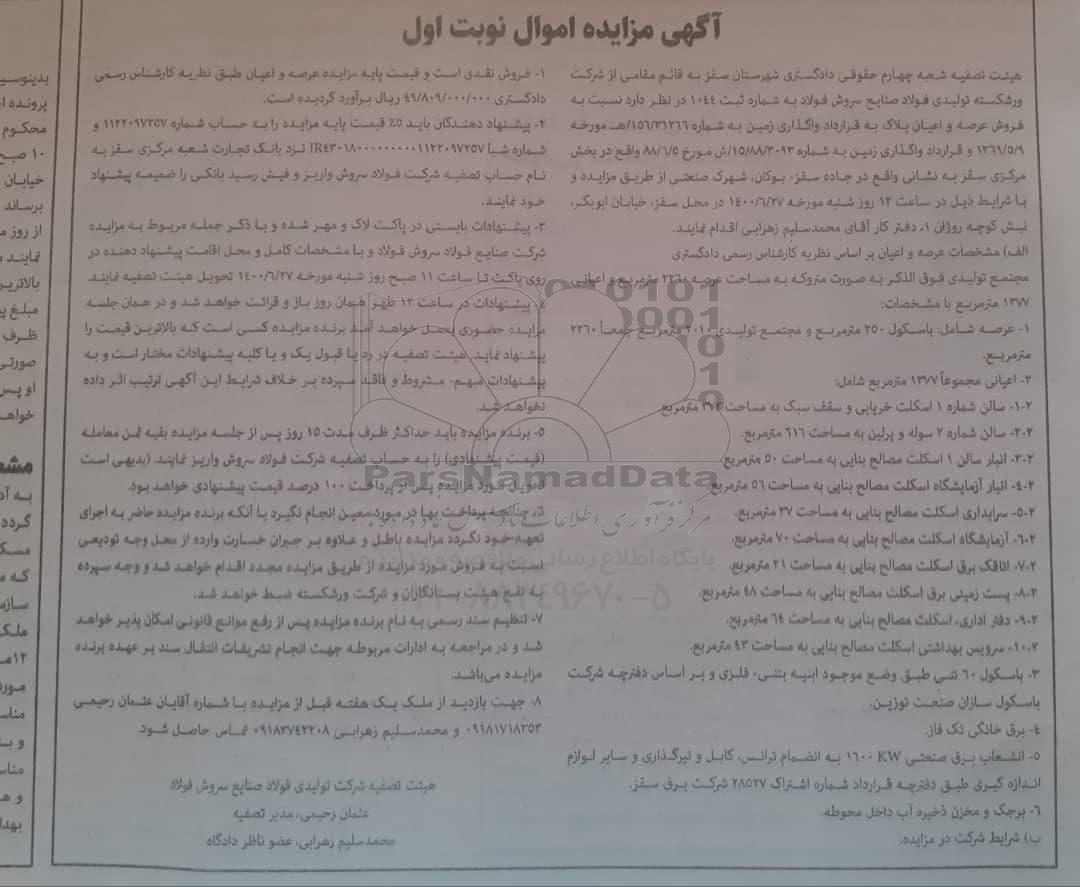 آگهی مزایده اموال نوبت اول
هیئت تصفیه شعبه چهارم حقوقی دادگستری شهرستان سقز به قائم مقامی از شرکت
ورشکسته تولیدی فولاد صنایع سروش فولاد به شماره ثبت ۱۰۴۴ در نظر دارد نسبت به
فروش عرصه و اعیان پلاک به قرارداد واگذاری زمین به شماره ۱۵۶/۳۱۲۶۶/هـ مورخه
۱۳۶۹/۵/۹ و قرارداد واگذاری زمین به شماره ۱۵/۸۸/۳۰۹۳/ش مورخ ۸۸/۶/۵ واقع در بخش
مرکزی سقز به نشانی واقع در جاده سقز- بوکان، شهرک صنعتی از طریق مزایده و
با شرایط ذیل در ساعت ۱۲ روز شنبه مورخه ۱۴۰۰/۶/۲۷ در محل سقز، خیابان ابوبگر،
نبش کوچه روژان ۱، دفتر کار آقای محمدسلیم زهرابی اقدام نمایند.
الف) مشخصات عرصه و اعیان بر اساس نظریه کارشناس رسمی دادگستری
مجتمع تولیدی فوق الذکر به صورت متروکه به مساحت عرصه ۲۲۶۰ مترمربع و اعیانی
۱۳۷۷ مترمربع با مشخصات:
۱- عرصه شامل: باسکول ۲۵۰ مترمربع و مجتمع تولیدی ۲۰۱۰ مترمربع جمعاً ۲۲۶۰
مترمربع.
۲- اعیانی مجموعاً ۱۳۷۷ مترمربع شامل:
۱-۲- سالن شماره ۱ اسکلت خرپایی و سقف سبک به مساحت ۳۷۲ مترمربع
۲-۲- سالن شماره ۲ سوله و پرلین به مساحت ۶۱۶ مترمربع.
۳-۲- انبار سالن ۱ اسکلت مصالح بنایی به مساحت ۵۰ مترمربع.
۴-۲- انبار آزمایشگاه اسکلت مصالح بنایی به مساحت ۵۶ مترمربع.
۵-۲- سرایداری اسکلت مصالح بنایی به مساحت ۳۷ مترمربع.
۶-۲- آزمایشگاه اسکلت مصالح بنایی به مساحت ۷۰ مترمربع.
۷-۲- اتاقک برق اسکلت مصالح بنایی به مساحت ۲۱ مترمربع.
۸-۲- پست زمینی برق اسکلت مصالح بنایی به مساحت ۴۸ مترمربع.
۹-۲- دفتر اداری، اسکلت مصالح بنایی به مساحت ۶۴ مترمربع.
۱۰-۲- سرویس بهداشتی اسکلت مصالح بنایی به مساحت ۴۳ مترمربع.
۳- باسکول ۶۰ تنی طبق وضع موجود ابنیه بتنی- فلزی و بر اساس دفترچه شرکت
باسکول سازان صنعت توزین.
۴- برق خانگی تک فاز.
۵- انشعاب برق صنعتی ۱۶۰۰ KW به انضمام ترانس، کابل و تیرگذاری و سایر لوازم
اندازه گیری طبق دفترچه قرارداد شماره اشتراک ۲۸۵۲۷ شرکت برق سقز.
۶- برجک و مخزن ذخیره آب داخل محوطه.
ب) شرایط شرکت در مزایده:
۱- فروش نقدی است و قیمت پایه مزایده عرصه و اعیان طبق نظریه کارشناس رسمی
دادگستری ۴۹/۸۰۹/۰۰۰/۰۰۰ ریال برآورد گردیده است.
۲- پیشنهاد دهندگان باید ۵٪ قیمت پایه مزایده را به حساب شماره ۱۱۲۲۰۹۷۲۵۷ و
شماره شبا IR۴۳۰۱۸۰۰۰۰۰۰۰۰۰۱۱۲۲۰۹۷۲۵۷ نزد بانک تجارت شعبه مرکزی سقز به
نام حساب تصفیه شرکت فولاد سروش واریز و فیش رسید بانکی را ضمیمه پیشنهاد
خود نمایند.
۳- پیشنهادات بایستی در پاکت لاک و مهر شده و با ذکر جمله مربوط به مزایده
شرکت صنایع فولاد سروش فولاد و با مشخصات کامل و محل اقامت پیشنهاد دهنده در
روی پاکت تا ساعت ۱۱ صبح روز شنبه مورخه ۱۴۰۰/۶/۲۷ تحویل هیئت تصفیه نمایند.
۴- پیشنهادات در ساعت ۱۲ ظهر همان روز باز و قرائت خواهد شد و در همان جلسه
مزایده حضوری بعمل خواهد آمد برنده مزایده کسی است که بالاترین قیمت را
پیشنهاد نماید. هیئت تصفیه در رد یا قبول یک و یا کلیه پیشنهادات مختار است و به
پیشنهادات مبهم- مشروط و فاقد سپرده بر خلاف شرایط این آگهی ترتیب اثر داده
نخواهد شد.
۵- برنده مزایده باید حداکثر ظرف مدت ۱۵ روز پس از جلسه مزایده بقیه ثمن معامله
(قیمت پیشنهادی) را به حساب تصفیه شرکت فولاد سروش واریز نمایند. (بدیهی است
تحویل مورد مزایده پس از پرداخت ۱۰۰ درصد قیمت پیشنهادی خواهد بود.
۶- چنانچه پرداخت بها در مورد معین انجام نگیرد یا آنکه برنده مزایده حاضر به اجرای
تعهد خود نگردد مزایده باطل و علاوه بر جبران خسارت وارده از محل وجه تودیعی
نسبت به فروش مورد مزایده از طریق مزایده مجدد اقدام خواهد شد و وجه سپرده
به نفع هیئت بستانکاران و شرکت ورشکسته ضبط خواهد شد.
۷- تنظیم سند رسمی به نام برنده مزایده پس از رفع موانع قانونی امکان پذیر خواهد
شد و در مراجعه به ادارات مربوطه جهت انجام تشریفات انتقال سند بر عهده برنده
مزایده می‌باشد.
۸- جهت بازدید از ملک یک هفته قبل از مزایده با شماره آقایان عثمان رحیمی
۰۹۱۸۱۷۱۸۳۵۳ و محمدسلیم زهرابی ۰۹۱۸۳۷۴۲۲۰۸ تماس حاصل شود.
هیئت تصفیه شرکت تولیدی فولاد صنایع سروش فولاد
عثمان رحیمی، مدیر تصفیه
محمدسلیم زهرابی، عضو ناظر دادگاه
ParsNamadData
پایگاه اطلاع رسانی مناقصه و مزایده
۰۲۱-۸۸۳۴۹۶۷۰-۵
بدینوسی
پرونده ا
محکوم
۱۰ صبح
خیابان
برساند
از روز م
نمایند
بالاتری
مبلغ پی
ظرف
صورتی
او پس
خواهد
مش
به آد
گردد
مسک
که م
سازم
ملک
۱۲م
مورد
مناس
و بن
مناس
و ه
بهدا